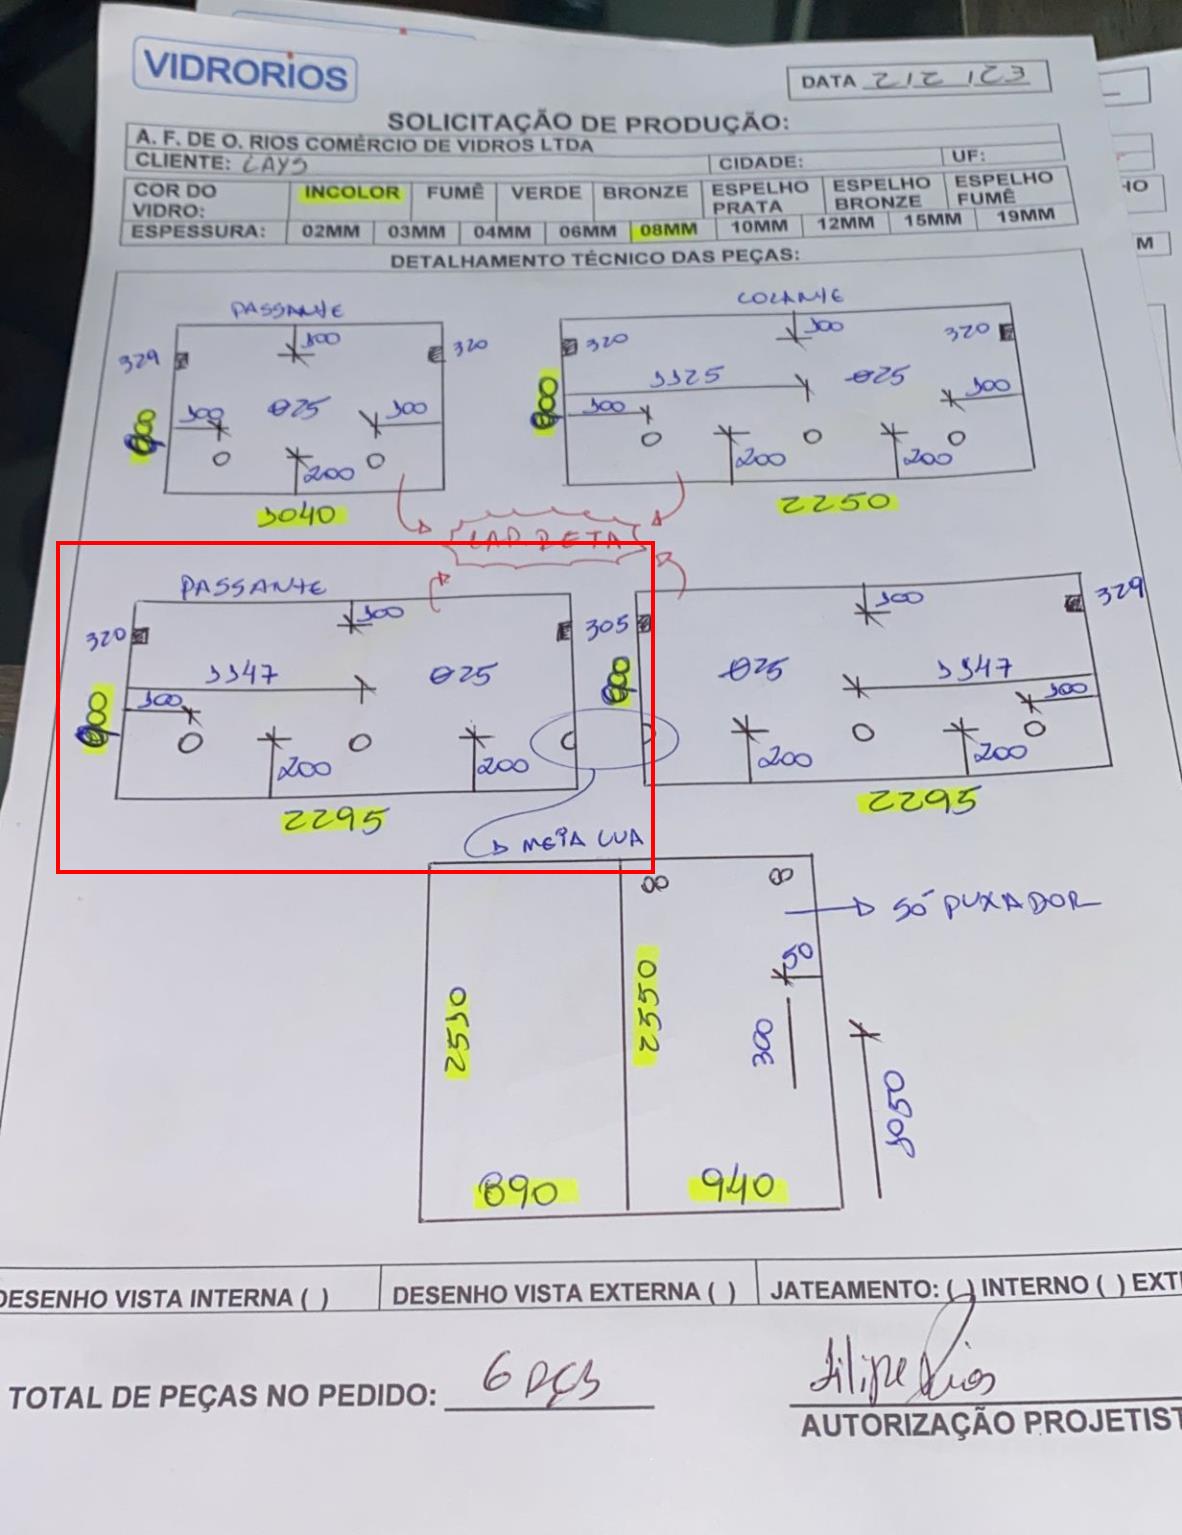 VIDRORIOS
DATA 2/2/23
SOLICITAÇÃO DE PRODUÇÃO:
A. F. DE O. RIOS COMÉRCIO DE VIDROS LTDA
CLIENTE: LAYS CIDADE: UF:
COR DO VIDRO: INCOLOR FUMÊ VERDE BRONZE ESPELHO PRATA ESPELHO BRONZE ESPELHO FUMÊ
ESPESSURA: 02MM 03MM 04MM 06MM 08MM 10MM 12MM 15MM 19MM
DETALHAMENTO TÉCNICO DAS PEÇAS:
PASSANTE
100
329
320
100
Ø25
100
200
1040
COLANTE
100
320
320
1125
Ø25
100
100
200
200
2250
LAP. RETA
PASSANTE
100
320
305
1147
Ø25
100
200
200
2295
100
329
Ø25
1147
100
200
200
2295
MEIA LUA
SÓ PUXADOR
50
2550
2550
300
1050
890
940
DESENHO VISTA INTERNA ( ) DESENHO VISTA EXTERNA ( ) JATEAMENTO: ( ) INTERNO ( ) EXT
TOTAL DE PEÇAS NO PEDIDO: 6 PÇS
Filipe Rios
AUTORIZAÇÃO PROJETIST
HO
M